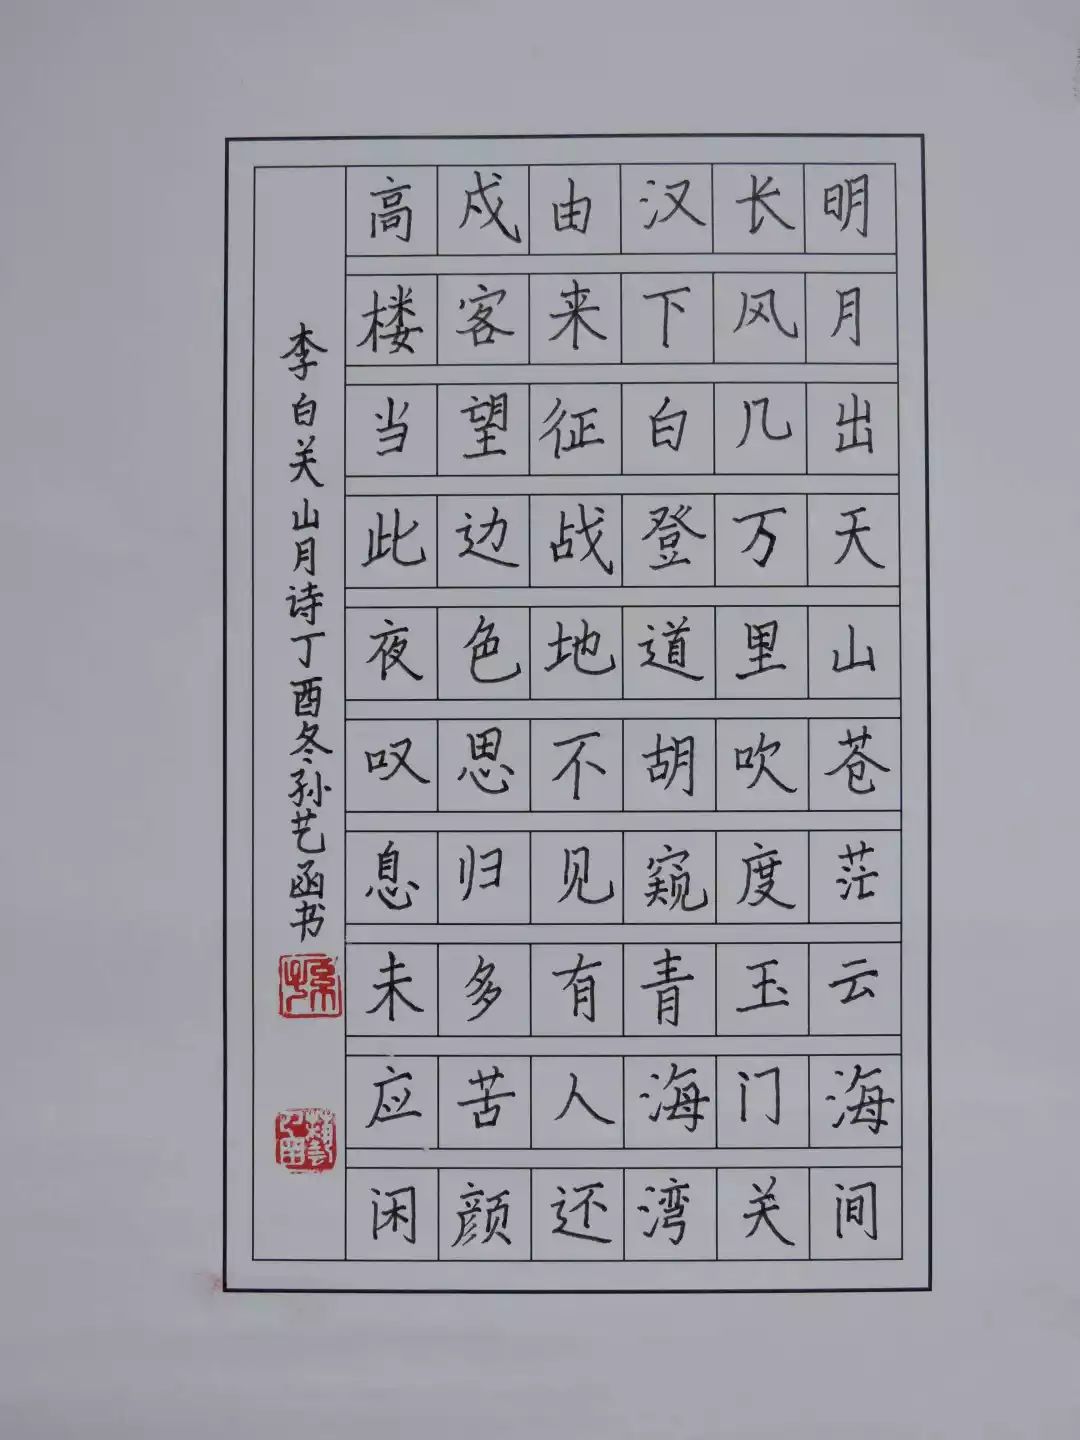 明月出天山苍茫云海间
长风几万里吹度玉门关
汉下白登道胡窥青海湾
由来征战地不见有人还
戍客望边色思归多苦颜
高楼当此夜叹息未应闲
李白关山月诗丁酉冬孙艺函书
孙